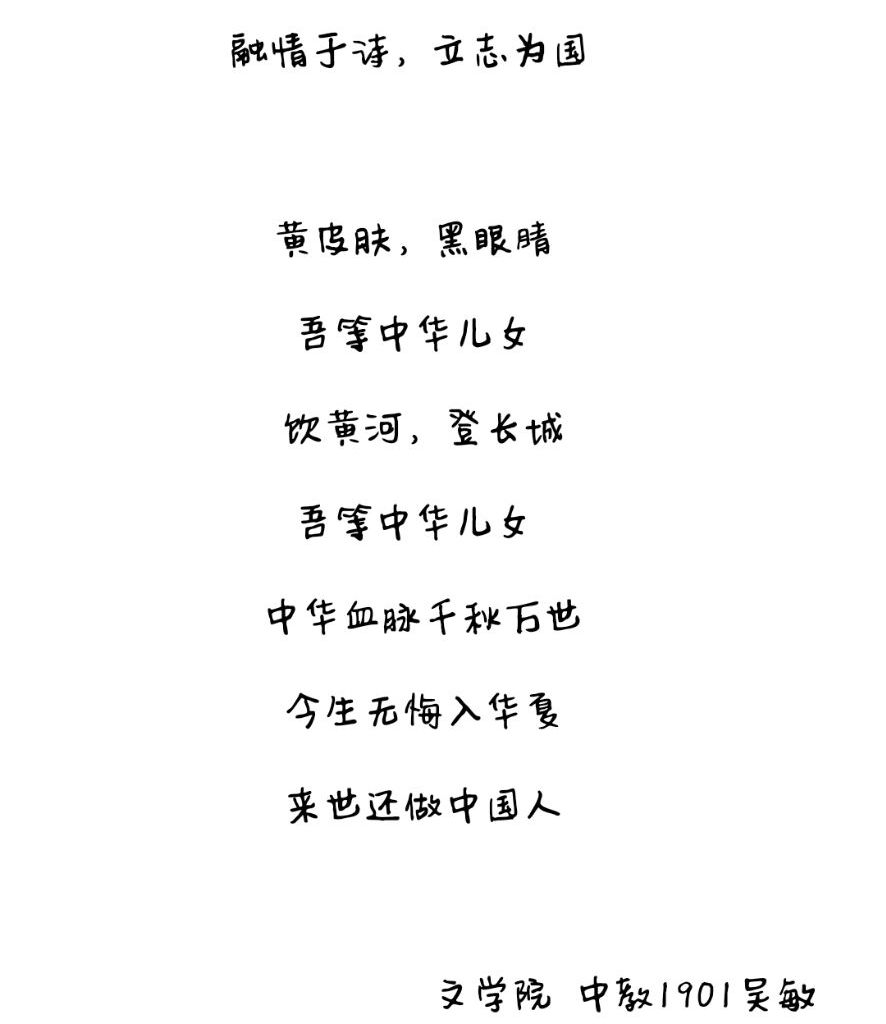 融情于诗，立志为国
黄皮肤，黑眼睛
吾等中华儿女
饮黄河，登长城
吾等中华儿女
中华血脉千秋万世
今生无悔入华夏
来世还做中国人
文学院 中教1901吴敏